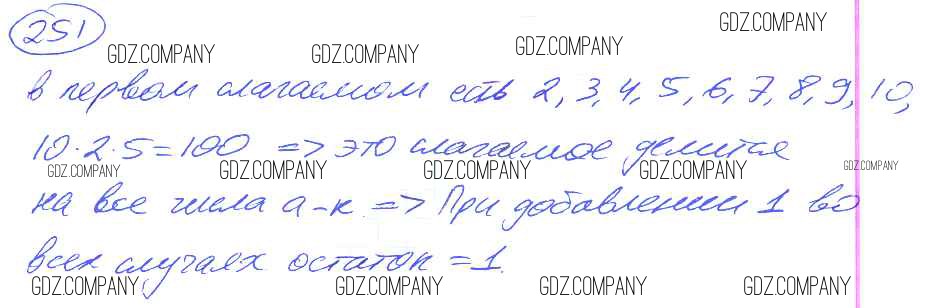 251
GDZ.COMPANY GDZ.COMPANY GDZ.COMPANY GDZ.COMPANY
В первом слагаемом есть 2, 3, 4, 5, 6, 7, 8, 9, 10,
10·2·5=100 => это слагаемое делится
GDZ.COMPANY GDZ.COMPANY GDZ.COMPANY GDZ.COMPANY GDZ.COMPANY
на все числа а-к => При добавлении 1 во
всех случаях остаток = 1.
GDZ.COMPANY GDZ.COMPANY GDZ.COMPANY GDZ.COMPANY